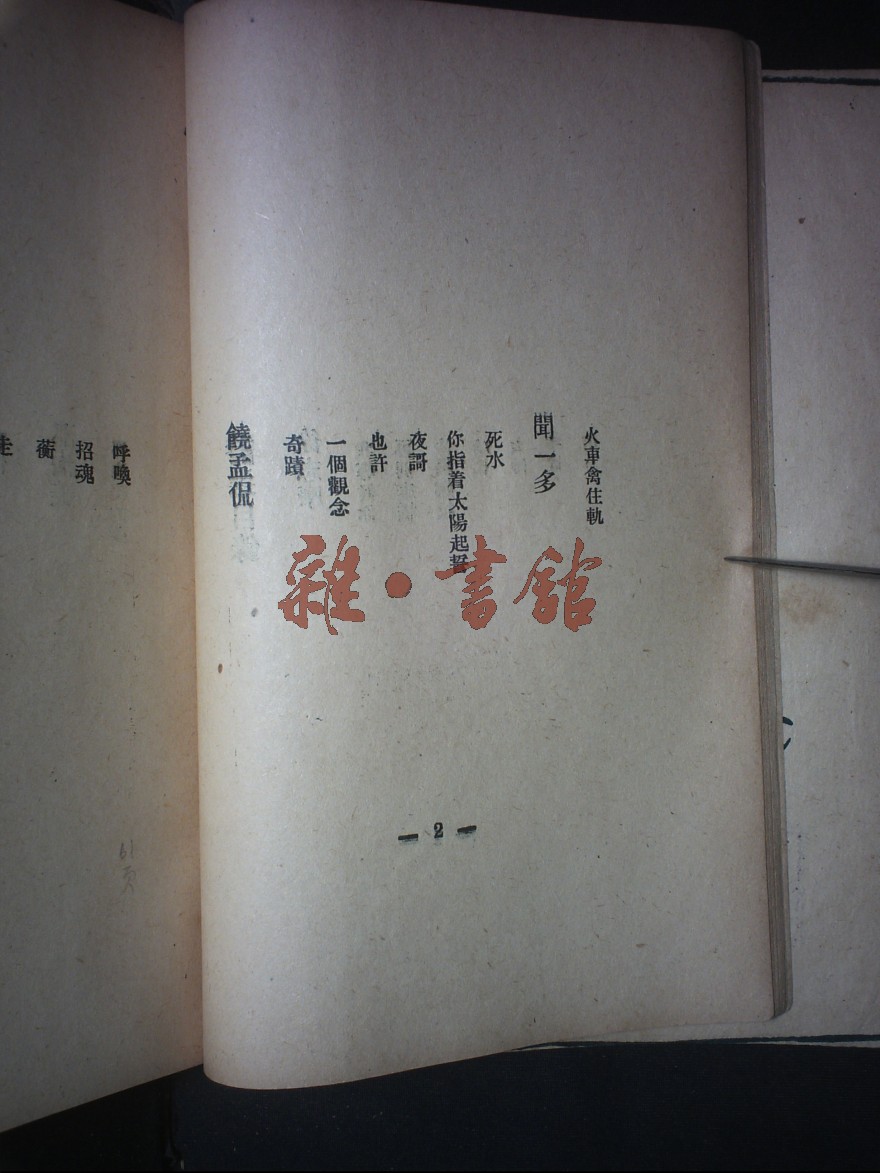 火車禽住軌
聞一多
死水
你指着太陽起誓
夜謌
也許
一個觀念
奇蹟
饒孟侃
雜·書館
— 2 —
呼喚
招魂
蘅
走
61页